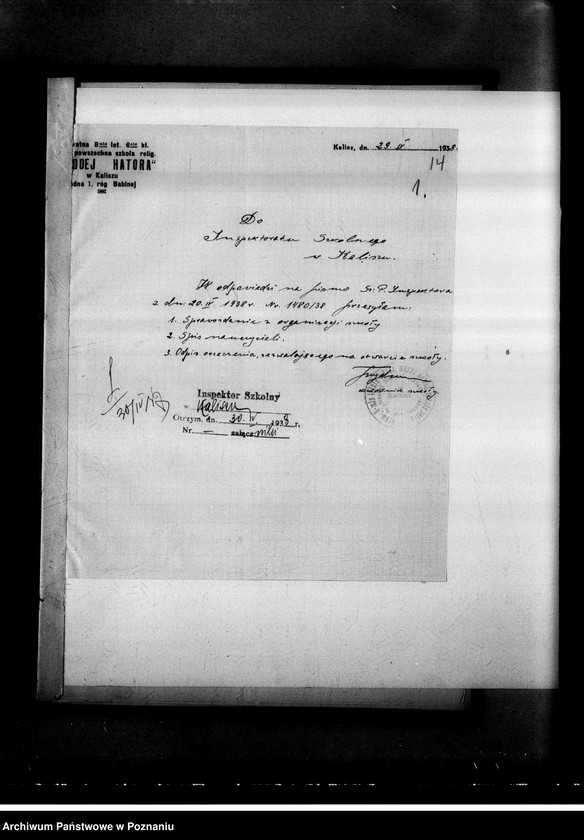 watna 8-mio let. 6-cio kl.
powszechna szkoła relig.
ODEJ HATORA"
w Kaliszu
odna 1, róg Babinej
Kalisz, dn. 29 IV 1938.
14
1.
Do
Inspektoratu Szkolnego
w Kaliszu.
W odpowiedzi na pismo P. Inspektora
z dn. 20. IV 1938 r. Nr. 1480/38 przesyłam:
1. Sprawozdanie z organizacji szkoły
2. Spis nauczycieli.
3. Odpis orzeczenia, zezwalającego na otwarcie szkoły.
szkoły.
30/IV
Inspektor Szkolny
w Kaliszu
Otrzym. dn. 30. IV. 1938 r.
Nr. — załącz.
Archiwum Państwowe w Poznaniu